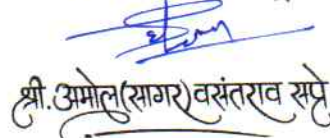 श्री. अमोल(सागर) वसंतराव सप्रे